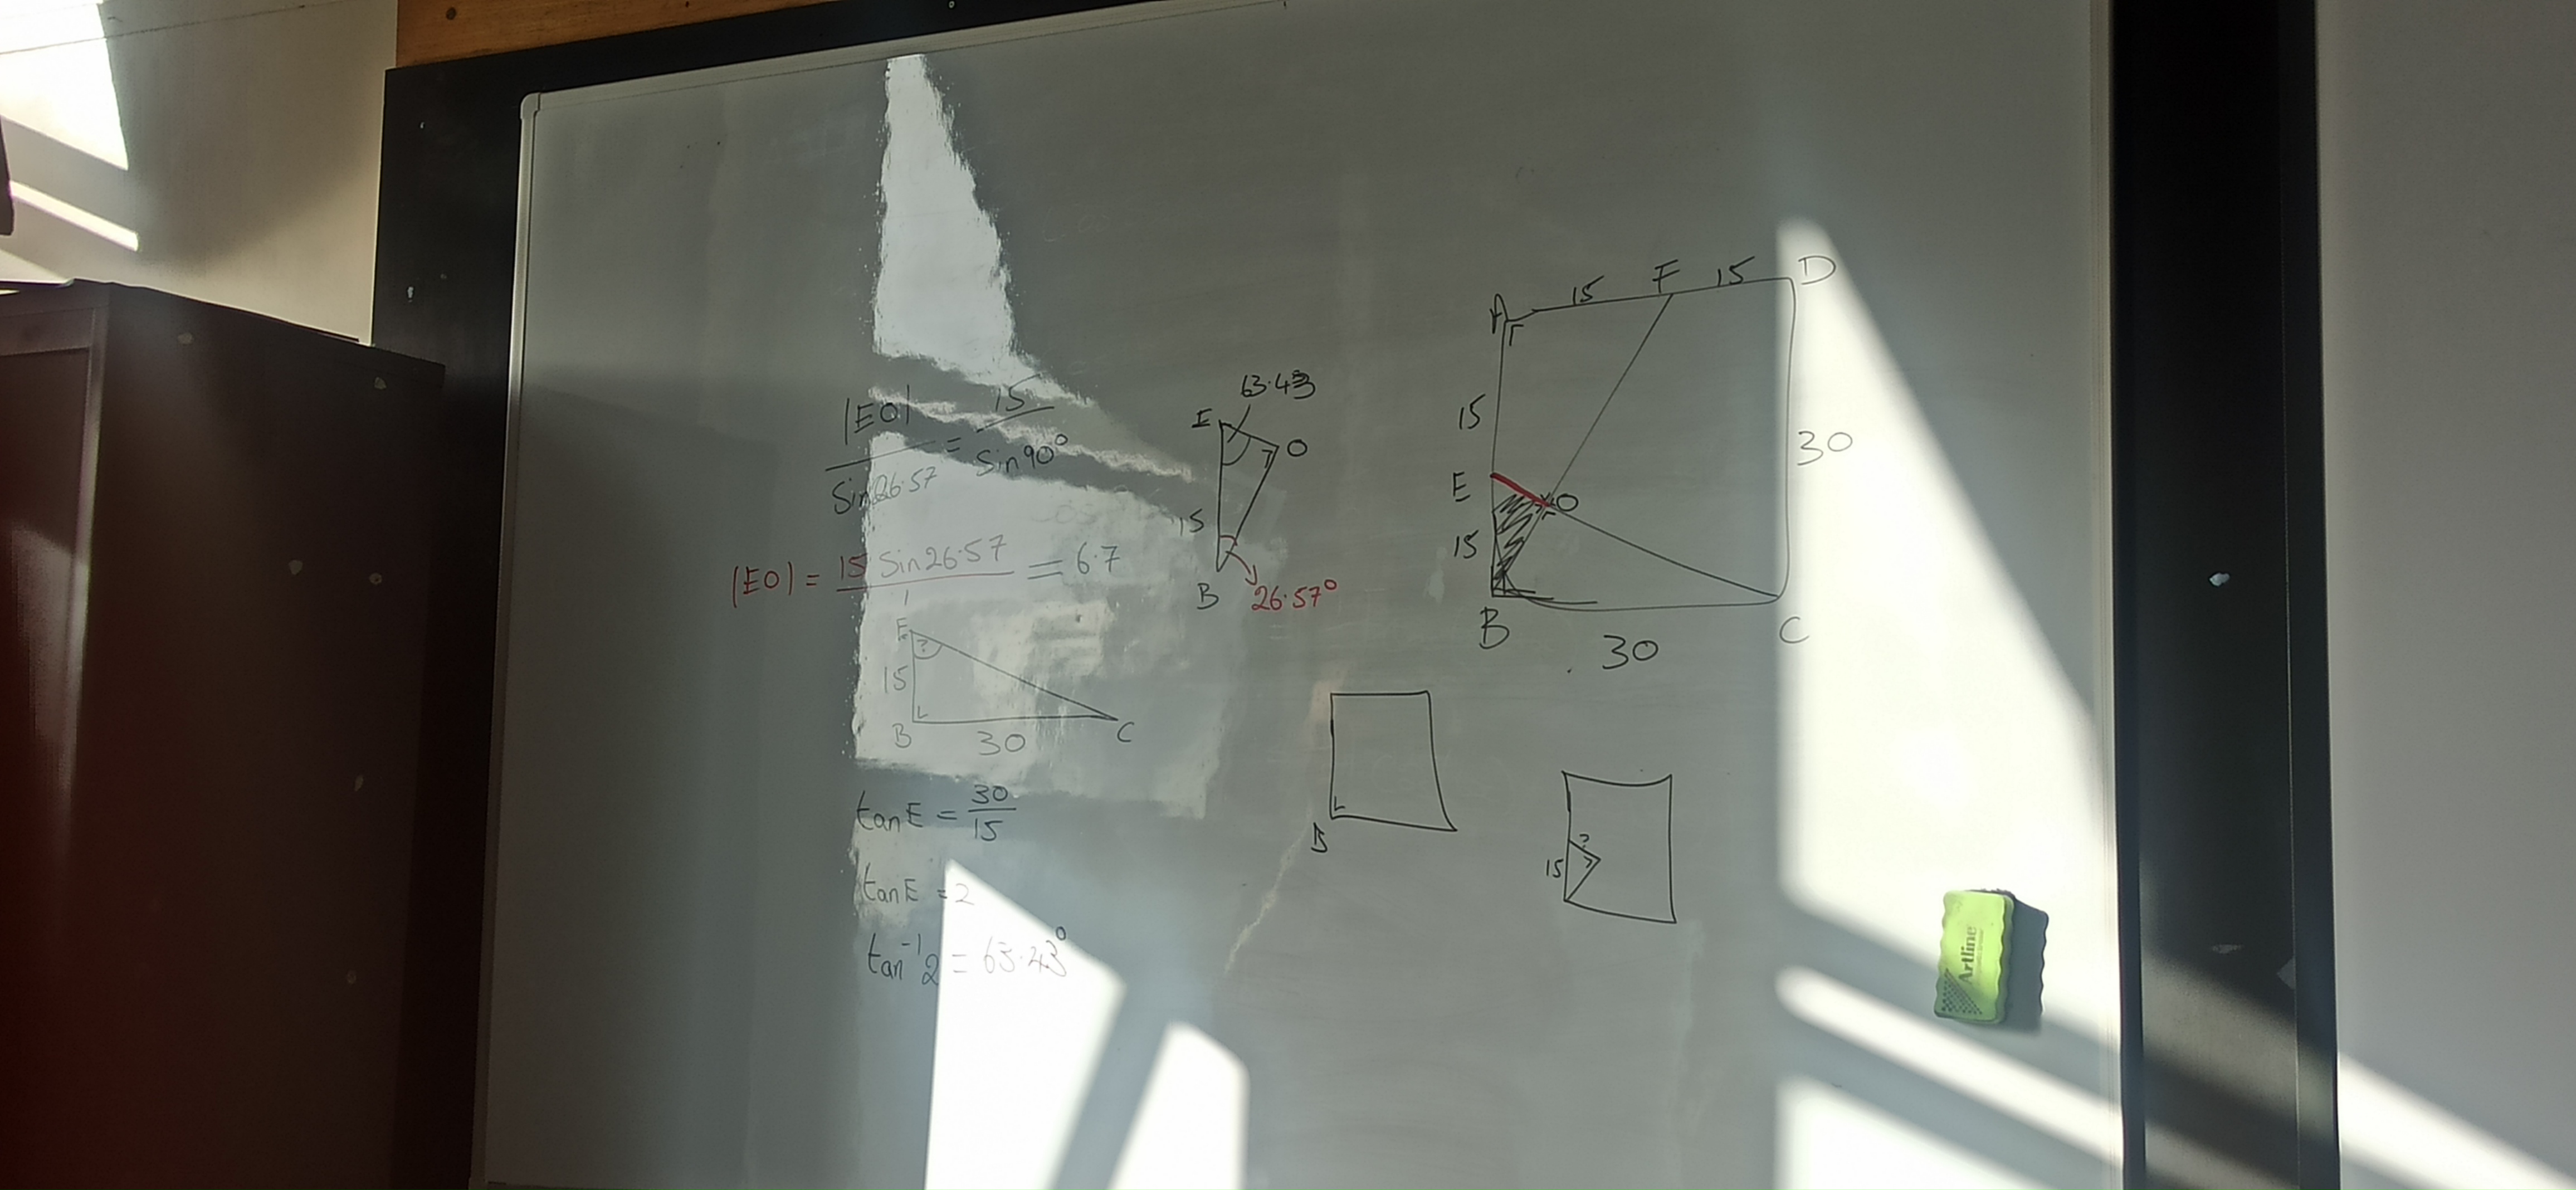 |EO| / Sin26.57 = 15 / Sin90°
|EO| = 15 Sin26.57 / 1 = 6.7
E
?
15
B
30
C
tanE = 30/15
tanE = 2
tan⁻¹2 = 63.43°
63.43
E
O
15
B
26.57°
A
15
F
15
D
15
30
E
O
15
B
30
C
B
?
15
Artline